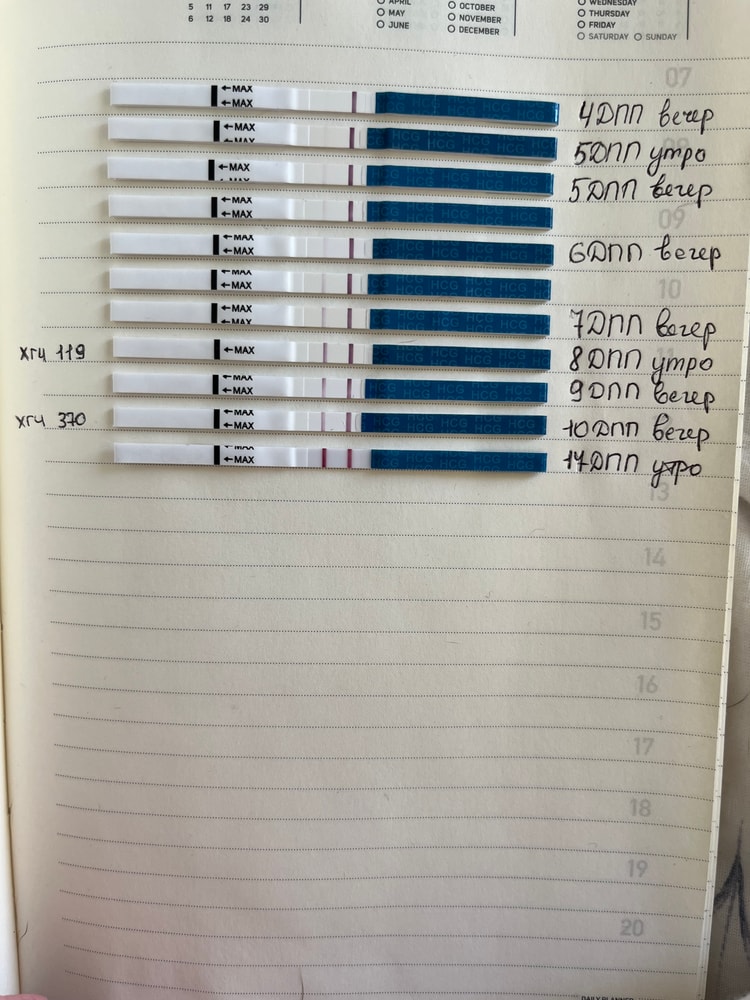 5 11 17 23 29
6 12 18 24 30
APRIL
MAY
JUNE
OCTOBER
NOVEMBER
DECEMBER
WEDNESDAY
THURSDAY
FRIDAY
SATURDAY SUNDAY
07
←MAX
←MAX
4ДПП вечер
←MAX
←MAX
HCG HCG HCG
5ДПП утро
←MAX
5ДПП вечер
←MAX
←MAX
09
←MAX
←MAX
6ДПП вечер
←MAX
←MAX
HCG HCG HCG
10
←MAX
←MAX
7ДПП вечер
хгч 119
←MAX
HCG HCG HCG
8ДПП утро
←MAX
←MAX
9ДПП вечер
хгч 370
←MAX
←MAX
HCG HCG HCG
10ДПП вечер
←MAX
←MAX
17ДПП утро
13
14
15
16
17
18
19
20
DAILY PLANNER